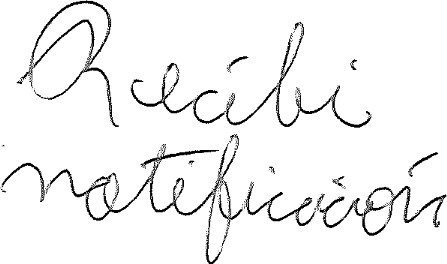 Recibi
notificación